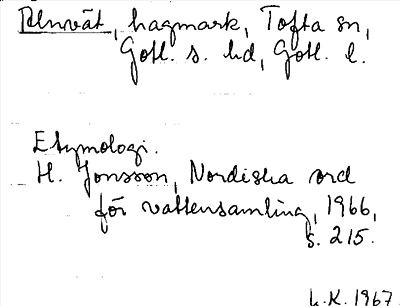 Alnvät, hagmark, Tofta sn,
Gotl. s. hd, Gotl. l.
Etymologi.
H. Jonsson, Nordiska ord
för vattensamling, 1966,
s. 215.
L.K. 1967